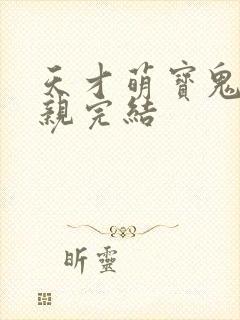 天才萌寶鬼
親完結
昕靈